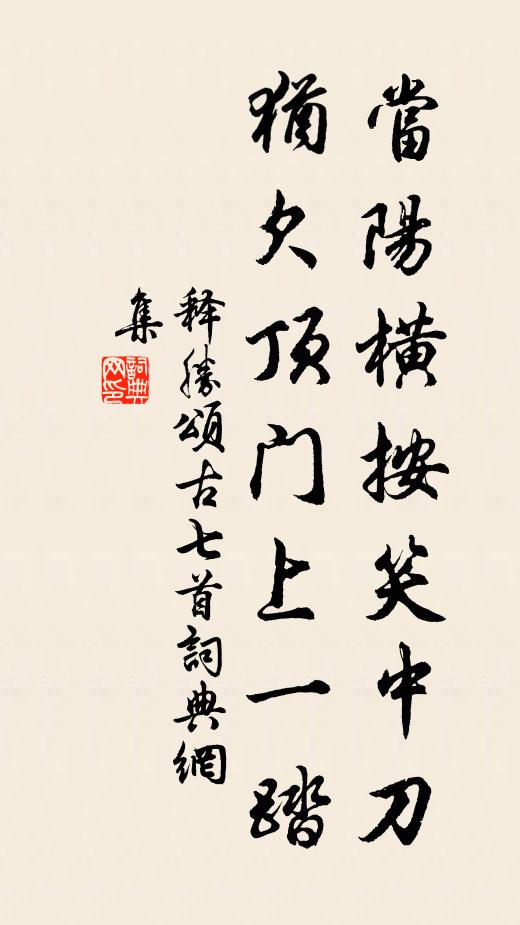 當陽橫按笑中刀
猶欠頂门上一踏
释勝頌古七首詞典網
集
詞典
网印